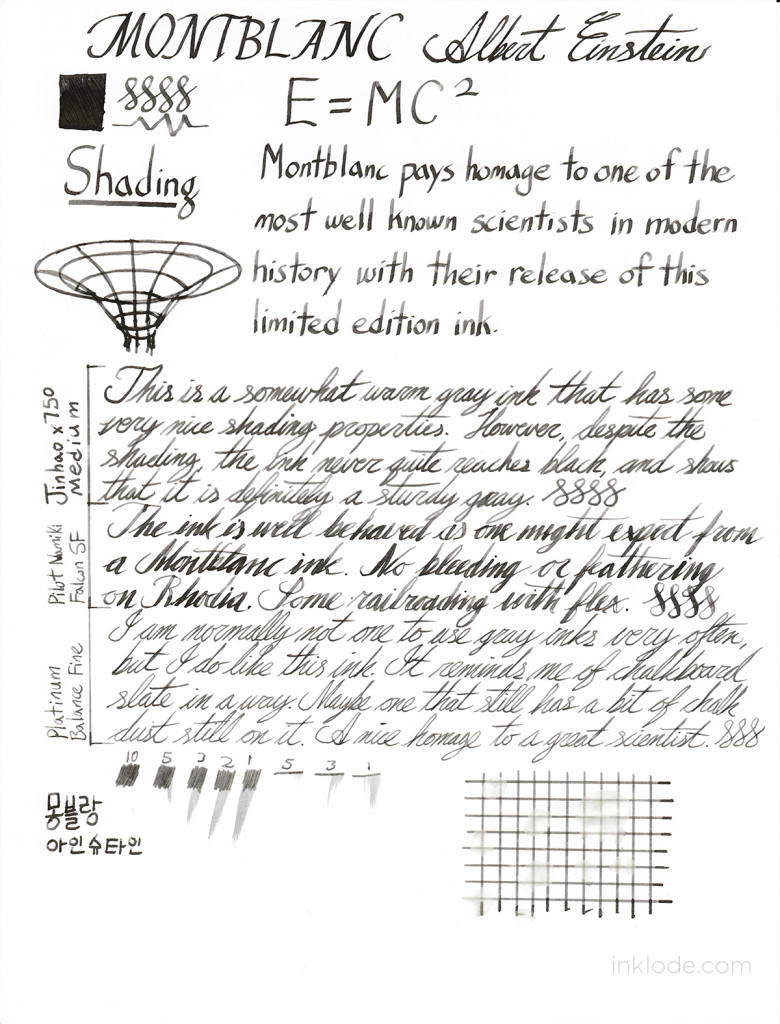 MONTBLANC Albert Einstein
E = MC²
Shading
Montblanc pays homage to one of the
most well known scientists in modern
history with their release of this
limited edition ink.
Jinhao x750
Medium
This is a somewhat warm gray ink that has some
very nice shading properties. However, despite the
shading, the ink never quite reaches black, and shows
that it is definitely a sturdy gray.
Pilot Namiki
Falcon SF
The ink is well behaved as one might expect from
a Montblanc ink. No bleeding or feathering
on Rhodia. Some railroading with flex.
Platinum
Balance Fine
I am normally not one to use gray inks very often,
but I do like this ink. It reminds me of chalkboard
slate in a way. Maybe one that still has a bit of chalk
dust still on it. A nice homage to a great scientist.
10 5 3 2 1 5 3 1
몽블랑
아인슈타인
inklode.com